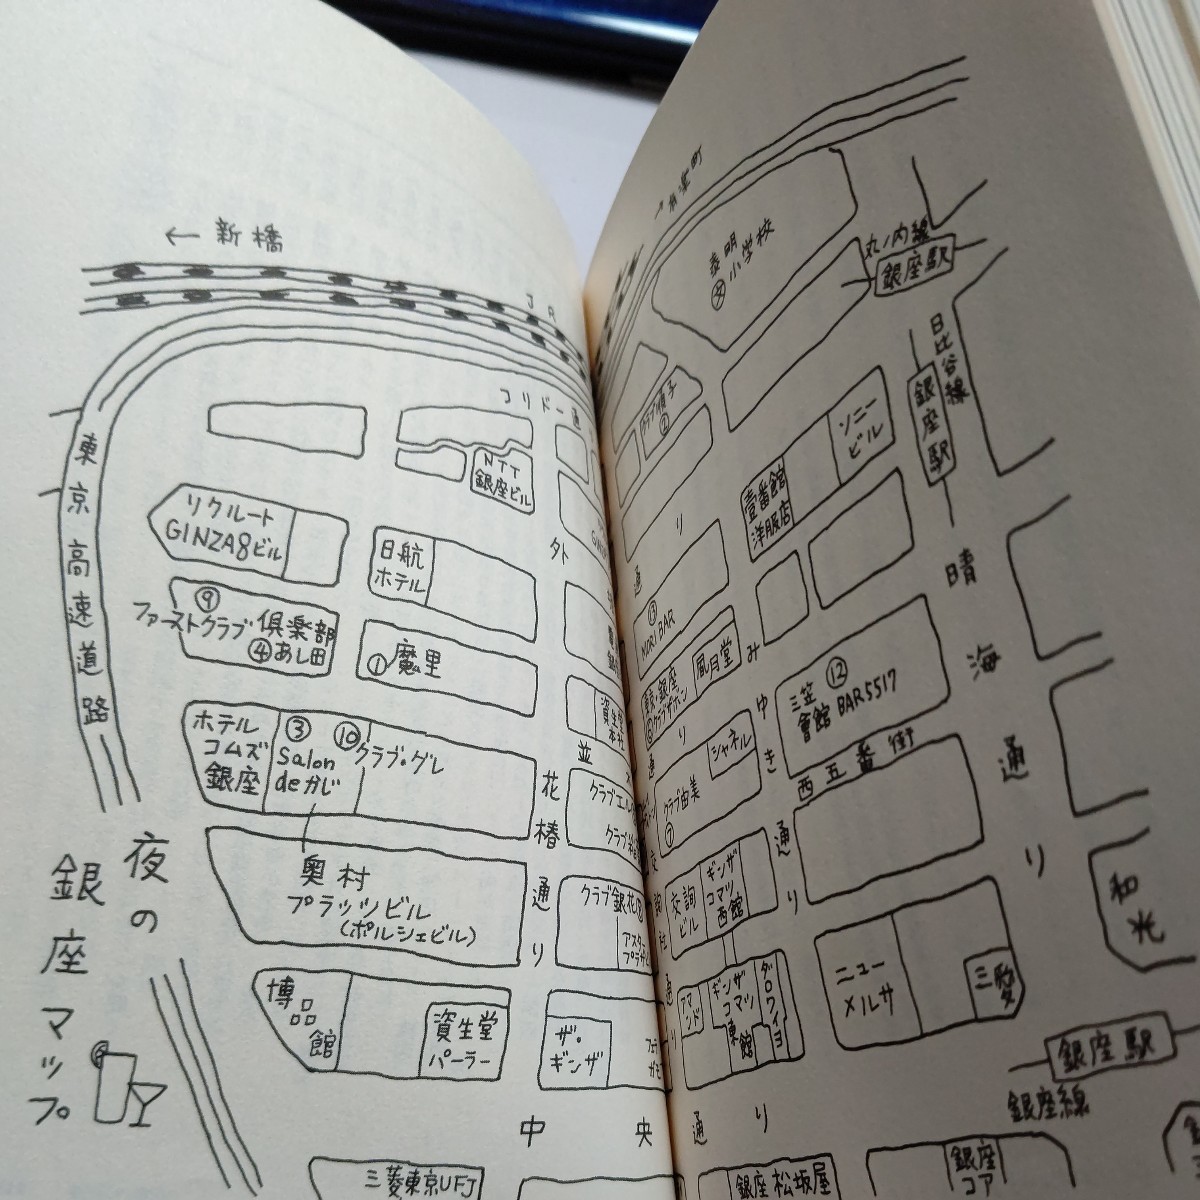 夜の
銀座マップ
← 新橋
JR
東京高速道路
コリドー通
NTT
銀座ビル
リクルート
GINZA8ビル
日航
ホテル
外
⑨
ファーストクラブ倶楽部
④あし田
①魔里
ホテル
コムズ
銀座
③
Salon
deかじ
⑩クラブ・グレ
奥村
プラッツビル
(ポルシェビル)
花椿通り
並
クラブ銀花
博品館
資生堂
パーラー
ザ・
ギンザ
中央
三菱東京UFJ
泰明
小学校
文
丸ノ内線
銀座駅
日比谷線
銀座駅
クラブ順子
②
ソニー
ビル
壹番館
洋服店
り
通
MORI BAR
風月堂
みゆき通り
シャネル
クラブ由美
⑦
三笠
會館
⑫
BAR5517
西五番街
晴海通り
交詢
ビル
ギンザ
コマツ
西館
アマンド
ギンザ
コマツ
東館
ニュー
メルサ
三愛
和光
銀座駅
銀座線
通り
銀座松坂屋
銀座
コア